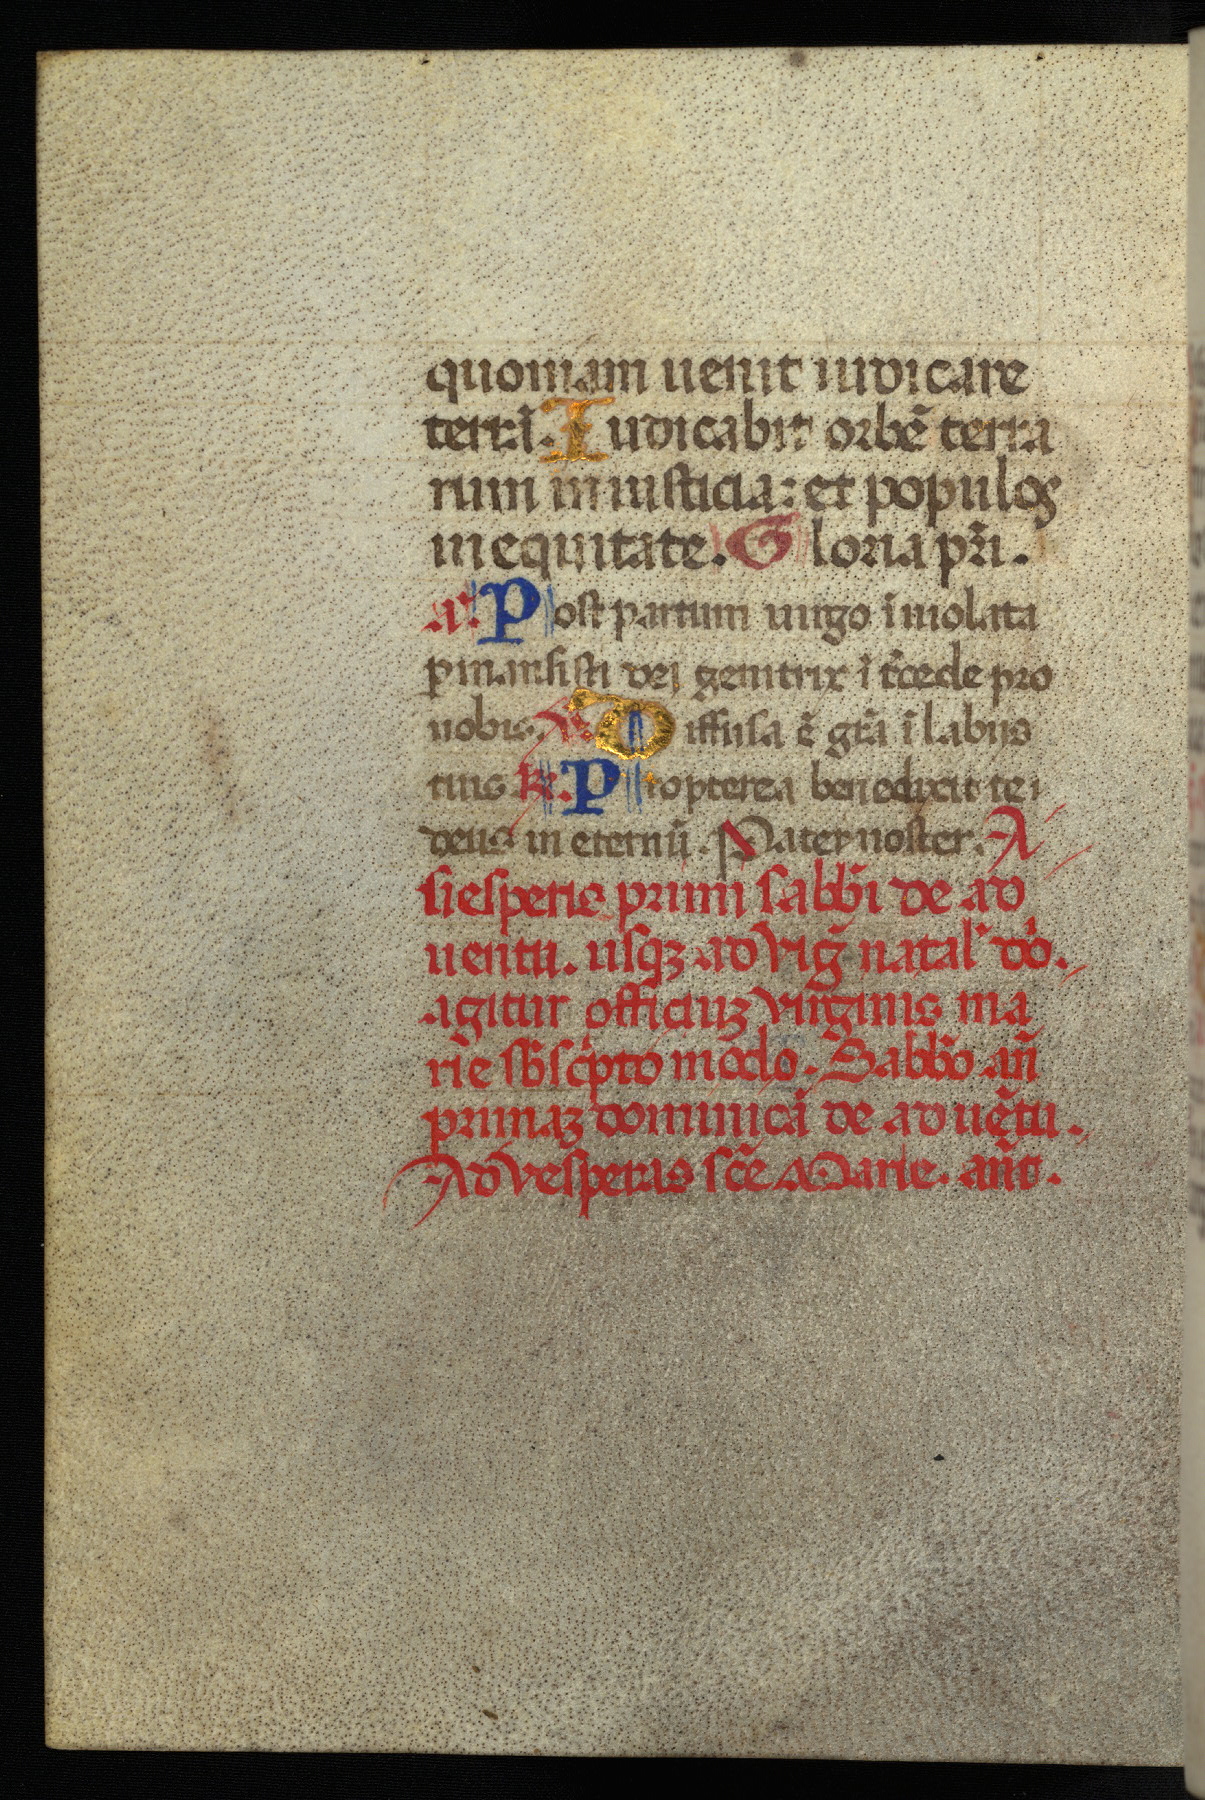 quoniam uenit iudicare
terrā. Iudicabit orbē terra
rum in iusticia: et populos
in equitate. Gloria pr̄i.
a. Post partum uirgo īuiolata
p̱mansisti dei genitrix īt̄cede pro
nobis. V. Diffusa ē gr̄a ī labijs
tuis R. Propterea benedixit te
deus in eternū. Pater noster. A
uesperis primi sabb̄i de ad
uentu. usqꝫ ad viḡ natal' do.
agitur officiuꝫ virginis ma
rie sb̄sc̄pto modo. Sabb̄o an̄
primaꝫ dominicā de aduētu.
Ad vesperas sc̄e Marie. an̄t.